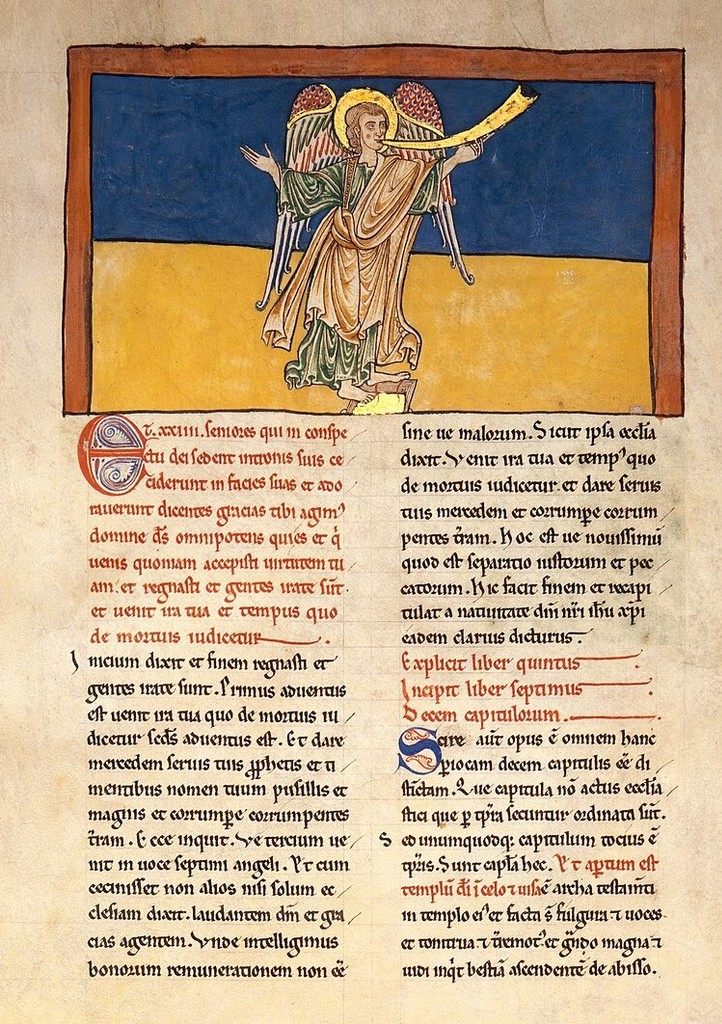 Et. xxiiii. seniores qui in conspe
ctu dei sedent intronis suis ce
ciderunt in facies suas et ado
rauerunt dicentes gracias tibi agim᾽
domine d̅s omnipotens qui es et q̇
uenis quoniam accepisti uirtutem tu
am. et regnasti et gentes irate su̅t.
et uenit ira tua et tempus quo
de mortuis iudicetur.
Inicium dixit et finem regnasti et
gentes irate sunt. Primus aduentus
est uenit ira tua quo de mortuis iu
dicetur sc̅d̅s aduentus est. Et dare
mercedem seruis tuis ꝓphetis et ti
mentibus nomen tuum pusillis et
magnis et corrumpe̅ corrumpentes
t̅ram. Ecce inquit. Ve tercium ue
nit in uoce septimi angeli. Vt cum
cecinisset non alios nisi solum ec
clesiam dixit. laudantem dm̅ et gra
cias agentem. Vnde intelligimus
bonorum remunerationem non e̅e
sine ue malorum. Sicut ipsa eccl̅ia
dixit. Venit ira tua et temp᾽ quo
de mortuis iudicetur. et dare seruis
tuis mercedem et corrumpe̅ corrum
pentes t̅ram. Hoc est ue nouissimu̅
quod est separatio iustorum et pec
catorum. Hic facit finem et recapi
tulat a natiuitate dn̅i nr̅i ih̅u xp̅i
eadem clarius dicturus.
Explicit liber quintus
Incipit liber septimus
Decem capitulorum.
Scire aut̅ opus e̅ omnem hanc
piocam decem capitulis e̅e di
sti̅ctam. Que capitula no̅ actus eccl̅ia
stici que ꝑ tp̅ra secuntur ordinata su̅t.
Sed unumquodq: capitulum tocius e̅
tp̅ris. Sunt cap̅la hec. Vt aꝑtum est
templu̅ d̅i i̅ celo & uisa e̅ archa testam̅ti
in templo ei᾽ et facta s̅ fulgura ⁊ uoces
et tonitrua ⁊ t̅remot᾽ et g̅ndo magna ⁊
uidi inq̇t bestia̅ ascendente̅ de abisso.